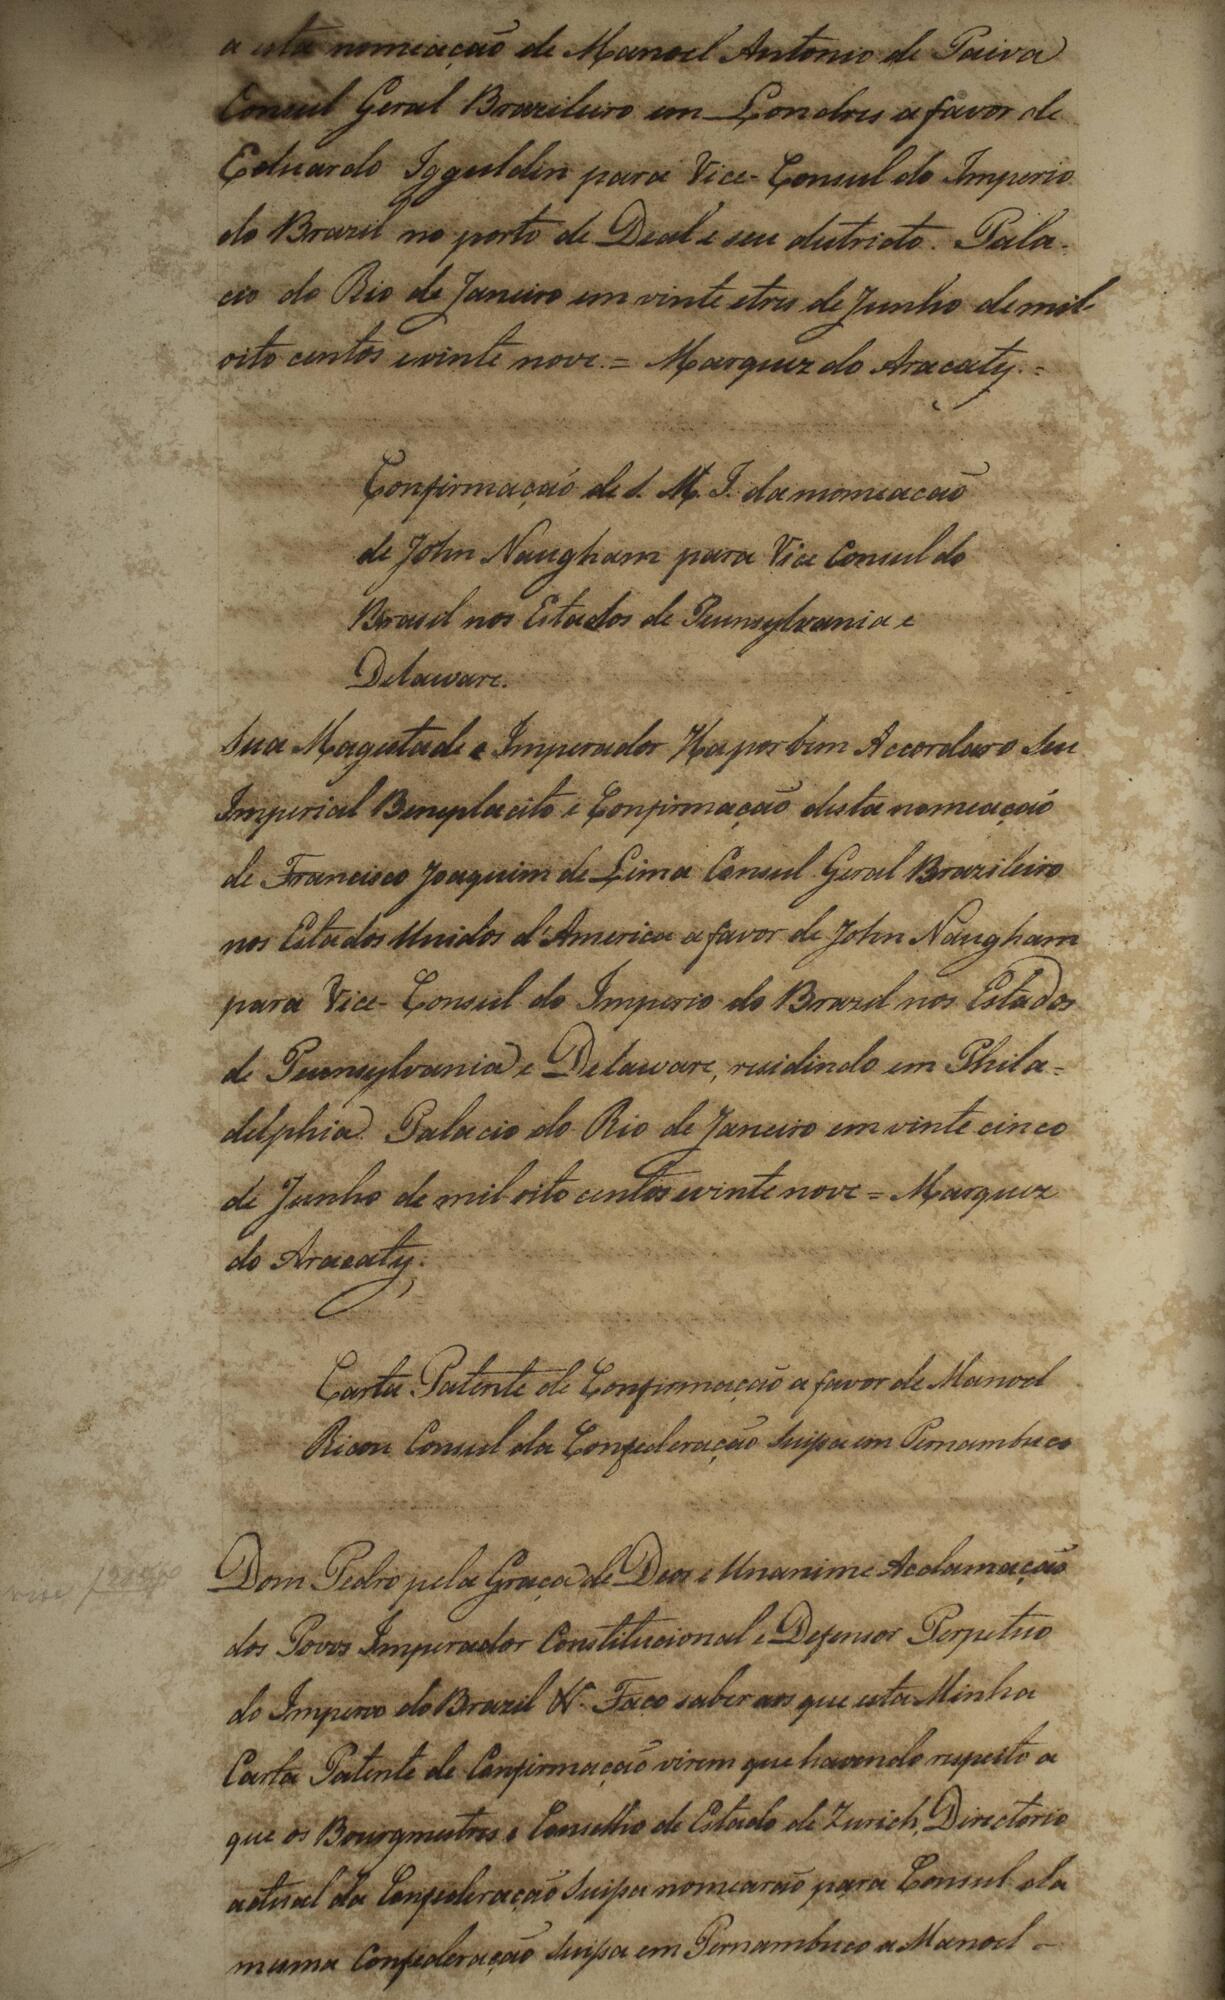 a esta nomeação de Manoel Antonio de Paiva
Consul Geral Brazileiro em Londres a favor de
Eduardo Igguldin para Vice-Consul do Imperio
do Brazil no porto de Deal e seu districto. Pala-
cio do Rio de Janeiro em vinte e tres de Junho de mil
oito centos e vinte nove. = Marquez do Aracaty. =
Confirmação de S. M. I. da nomeacaõ
de John Naugham para Vice Consul do
Brasil nos Estados de Pennsylvania e
Delaware.
Sua Magestade o Imperador Ha por bem Accordar o Seu
Imperial Beneplacito e Confirmação desta nomeação
de Francisco Joaquim de Lima Consul Geral Brazileiro
nos Estados Unidos d'America a favor de John Naugham
para Vice-Consul do Imperio do Brazil nos Estados
de Pennsylvania e Delaware, residindo em Phila-
delphia. Palacio do Rio de Janeiro em vinte cinco
de Junho de mil oito centos e vinte nove = Marquez
do Aracaty.
Carta Patente de Confirmação a favor de Manoel
Ricou Consul da Confederação Suissa em Pernambuco
Dom Pedro pela Graça de Deos e Unanime Acclamação
dos Povos Imperador Constitucional e Defensor Perpetuo
do Imperio do Brazil &c. Faco saber aos que esta Minha
Carta Patente de Confirmação virem que havendo respeito a
que os Bourgmestres e Conselho de Estado de Zurich, Directorio
actual da Confederação Suissa nomearaõ para Consul da
mesma Confederação Suissa em Pernambuco a Manoel -